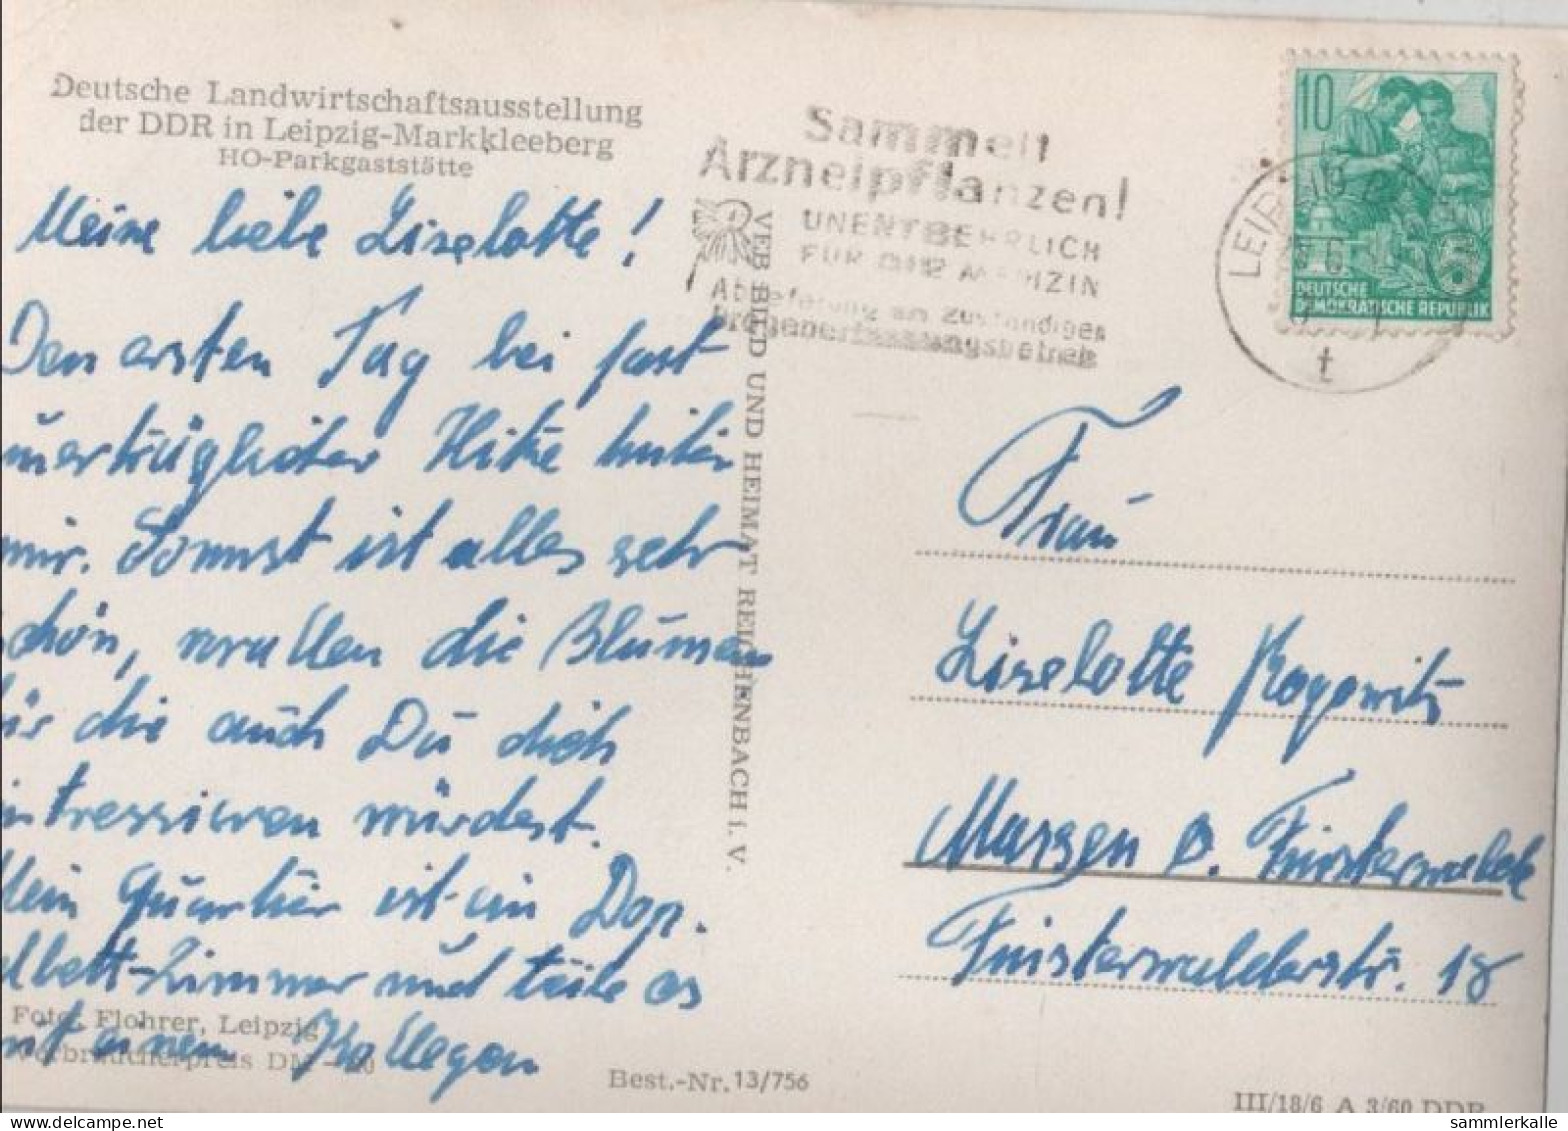 Deutsche Landwirtschaftsausstellung
der DDR in Leipzig-Markkleeberg
HO-Parkgaststätte
Meine liebe Liselotte!
Den ersten Tag bei fast
unerträglicher Hitze hinter
mir. Sonnst ist alles sehr
schön, vor allen die Blumen
für die auch Du dich
intressieren würdest.
Mein Quartier ist ein Dop.
elbett-Zimmer und teile es
mit einem Kollegen
Foto: Flohrer, Leipzig
Verbraucherpreis DM
Best.-Nr. 13/756
VEB BILD UND HEIMAT REICHENBACH I. V.
Sammelt
Arzneipflanzen!
UNENTBEHRLICH
FÜR DIE MEDIZIN
Ablieferung an zuständiges
Drogenerfassungsbetrieb
10
DEUTSCHE
DEMOKRATISCHE REPUBLIK
LEIP
t
Frau
Liselotte Rogowitz
Massen b. Finsterwalde
Finsterwalderstr. 18
III/18/6 A 3/60 DDR
sammlerkalle